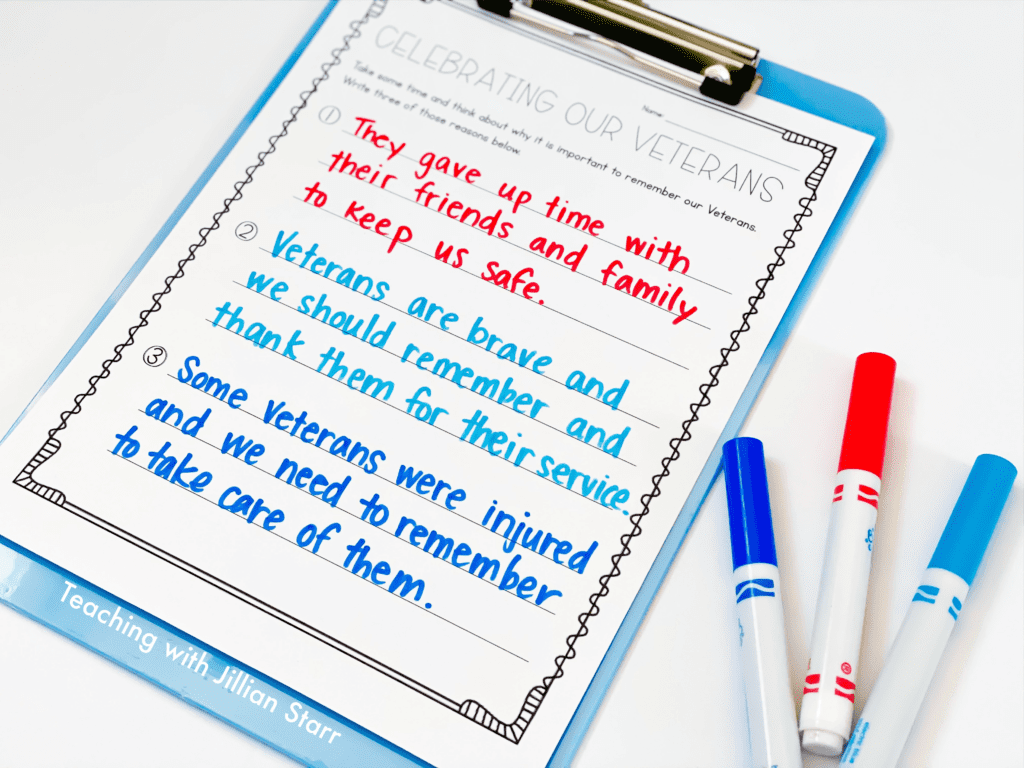 Name:
CELEBRATING OUR VETERANS
Take some time and think about why it is important to remember our Veterans.
Write three of those reasons below.
1 They gave up time with
their friends and family
to keep us safe.
2 Veterans are brave and
we should remember and
thank them for their service.
3 Some veterans were injured
and we need to remember
to take care of them.
Teaching with Jillian Starr